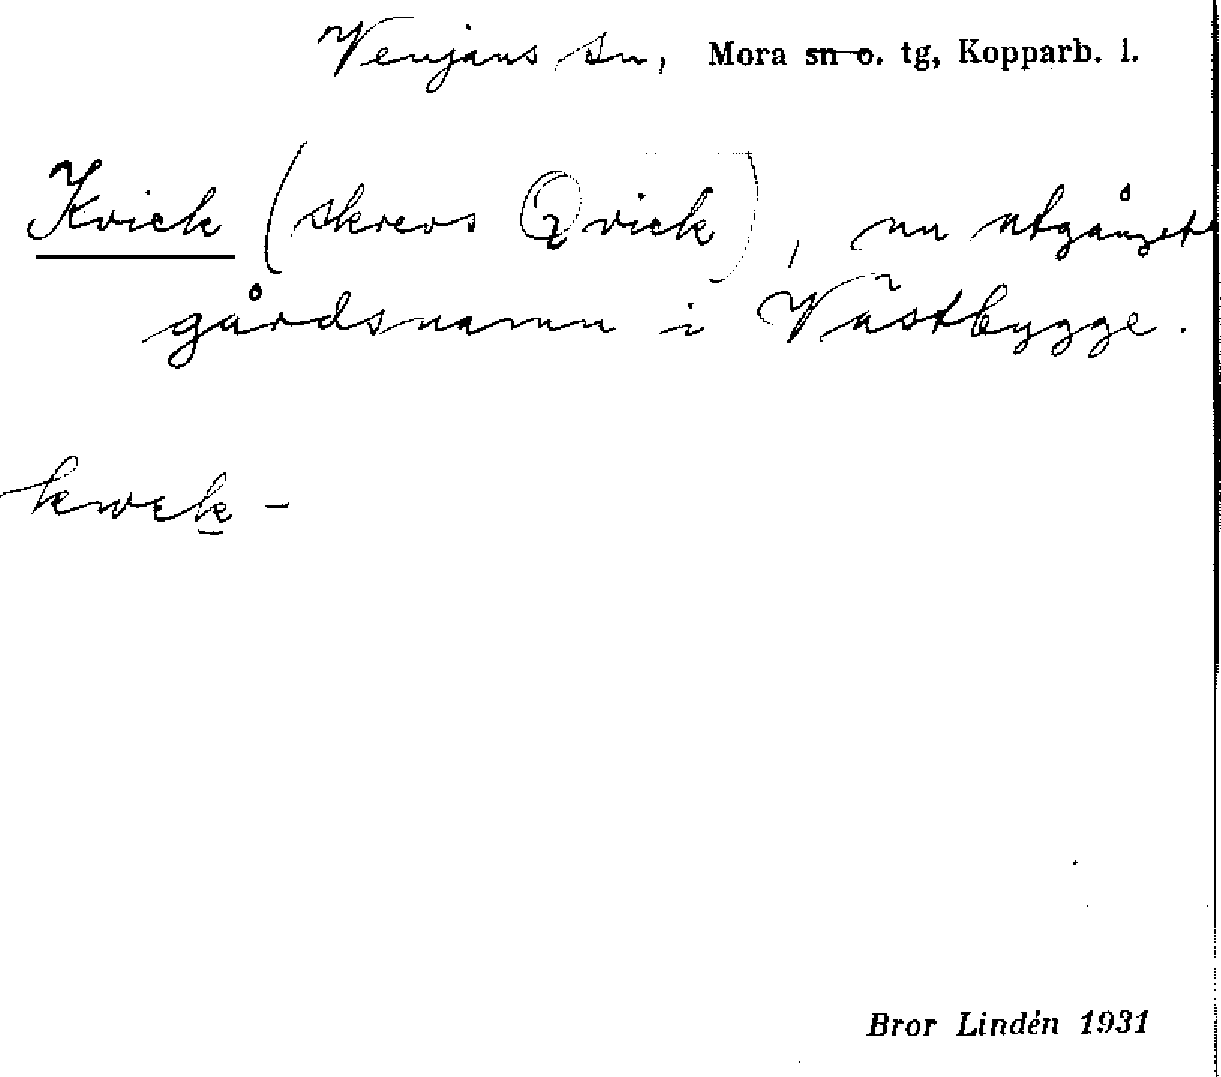 Venjans sn, Mora sn o. tg, Kopparb. l.
Kvick (skrevs Qvick), nu utgånget
gårdsnamn i Västbygge.
kwek -
Bror Lindén 1931